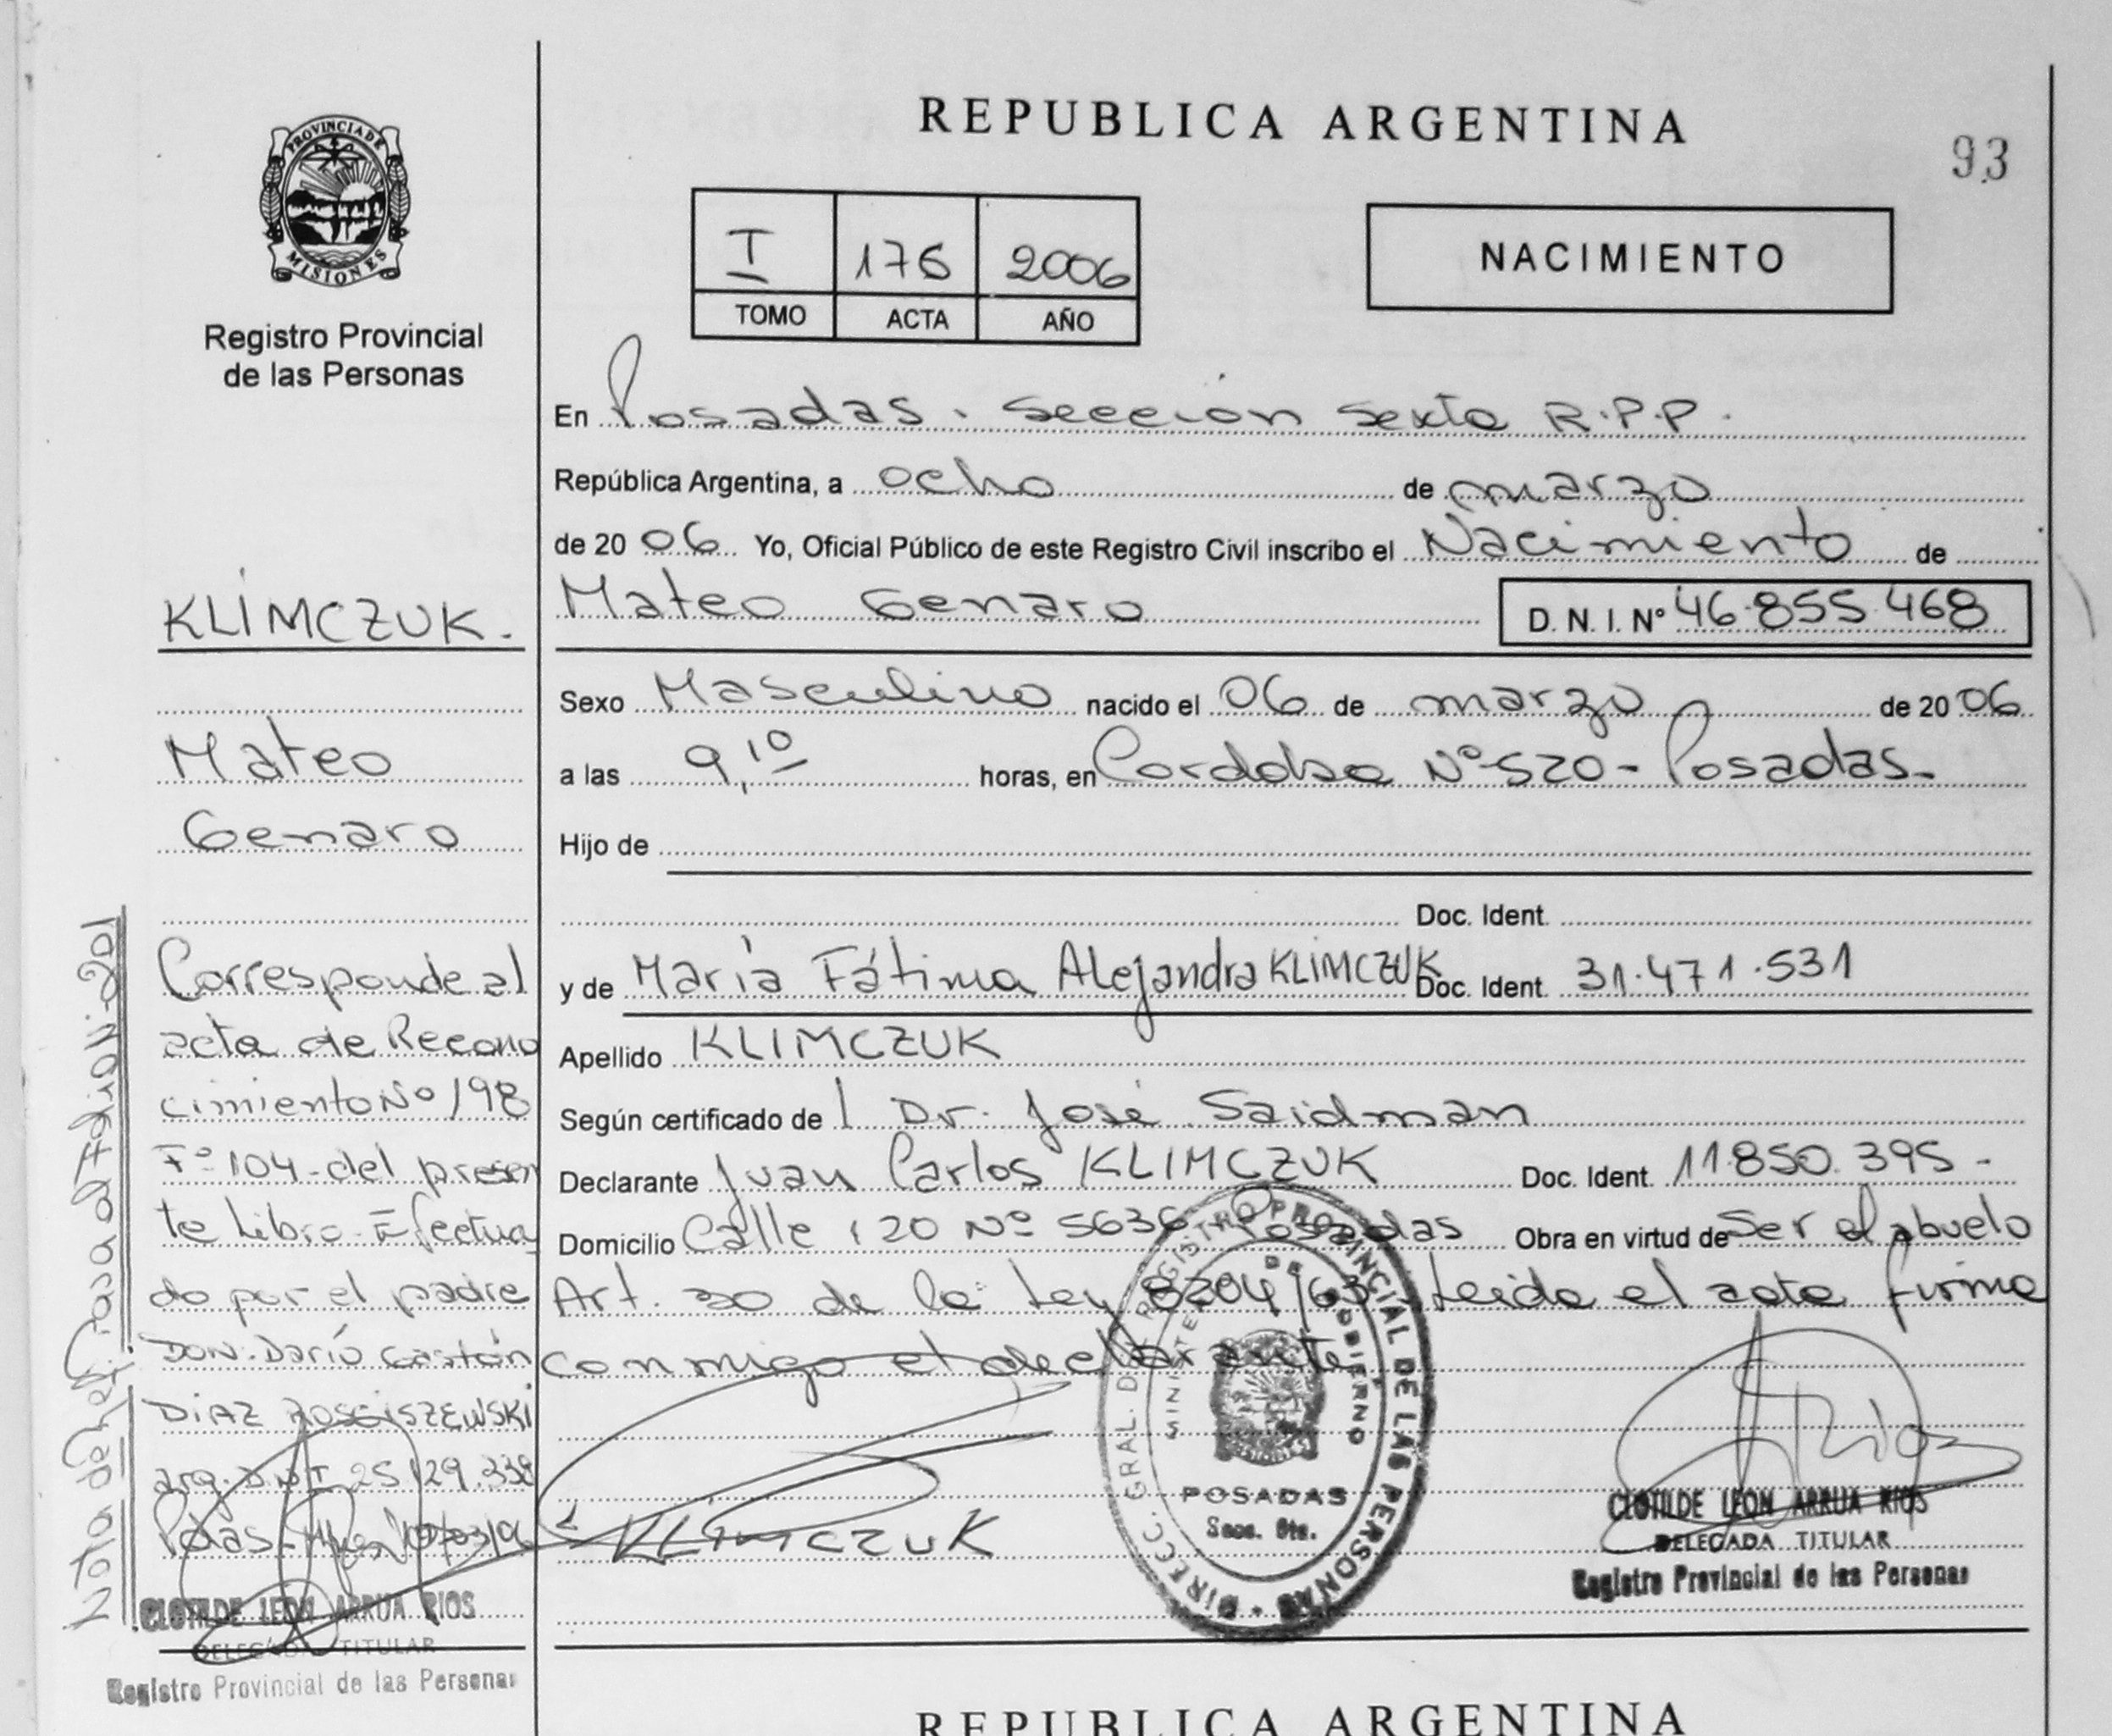 PROVINCIA DE
MISIONES
Registro Provincial
de las Personas
KLIMCZUK.
Mateo
Genaro
Corresponde al
acta de Recono
cimiento Nº 198
Fº 104 - del presen
te Libro - Efectua
do por el padre
DON. Darío Gastón
DIAZ ROSCISZEWSKI
arg. D.N.I 25.129.338
CLOTILDE LEON ARRUA RIOS
DELEGADA TITULAR
Registro Provincial de las Personas
Nota de Ref: Pasa al Folio Nº 201
REPUBLICA ARGENTINA
93
I 176 2006
TOMO ACTA AÑO
NACIMIENTO
En Posadas. Sección Sexta R.P.P.
República Argentina, a ocho de marzo
de 20 06 Yo, Oficial Público de este Registro Civil inscribo el Nacimiento de
Mateo Genaro D. N. I. Nº 46.855.468
Sexo Masculino nacido el 06 de marzo de 20 06
a las 9,10 horas, en Cordoba Nº 520 - Posadas-
Hijo de
Doc. Ident.
y de María Fátima Alejandra KLIMCZUK Doc. Ident. 31.471.531
Apellido KLIMCZUK
Según certificado de l Dr. José Saidman
Declarante Juan Carlos KLIMCZUK Doc. Ident. 11.850.395-
Domicilio Calle 120 Nº 5636 - Posadas Obra en virtud de Ser el abuelo
Art. 30 de la Ley 8204/63 Leida el acta firma
conmigo el declarante
KLIMCZUK
DIRECC. GRAL. DEL REGISTRO PROVINCIAL DE LAS PERSONAS
MINISTERIO DE GOBIERNO
POSADAS
Secc. 6ta.
Rios
CLOTILDE LEON ARRUA RIOS
DELEGADA TITULAR
Registro Provincial de las Personas
REPUBLICA ARGENTINA